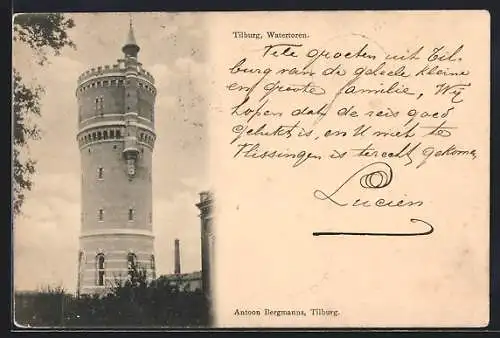 Tilburg, Watertoren.
Vele groeten uit Til-
burg van de geheele kleine
en groote familie, Wij
hopen dat de reis goed
gelukt is, en U met te
Vlissingen is terecht gekomen
Lucien
Antoon Bergmanns, Tilburg.